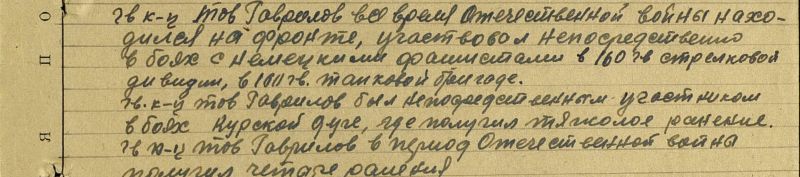 гв к-ц тов Гаврилов все время Отечественной войны нахо-
дился на фронте, участвовал непосредственно
в боях с немецкими фашистами в 160 гв стрелковой
дивизии, в 1611 гв. танковой бригаде.
гв. к-ц тов Гаврилов был непосредственным участником
в боях Курской дуге, где получил тяжолое ранение.
гв к-ц тов Гаврилов в период Отечественной войны
получил четыре ранения
О
П
Я